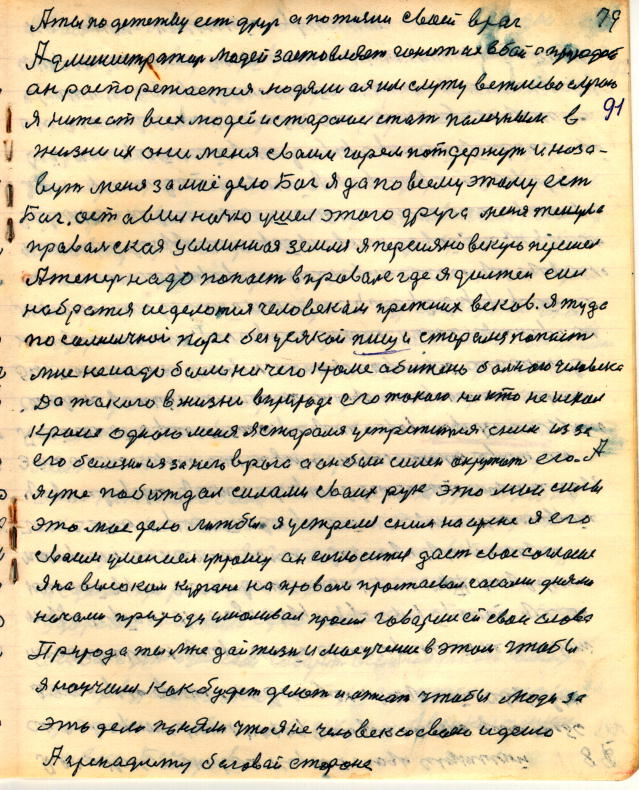 А ты по детству ест друг а по жизни своей враг 79
Администратар людей заставляет гонит не в бой а природ
ан распорежается людями а я им служу ветливо слушаю
я ниже ст всех людей и стараюсь стат памочным в 91
жизни их они меня сваим горем потдержут и назо-
вут меня за маё дело Бог я да по всему этому ест
Бог. аставил начю ушел этого друга меня тянула
правальская землю я персияновскую перешел
А тепер надо попаст в провал где я должен сил
набратся и сделатся человекам прежних веков. Я туда
по солнычной паре без усякой пищи старался попаст
мне не надо было ничего кроме абижень больного человека
Да такого в жизни в природе его такого никто не искал
кроме одного меня я старался устретится с ним из за
его болезни я за него врага а он был силен окружат его. А
я уже пабиждал силами сваих рук это мои силы
это мое дело я устрелся с ним на арене я его
сваим умением упрошу ан согласится даст свое согласие
Я на высоком кургане на провале простаевал часами днями
начами природу умоливал просил говорил ей свои слова
Природа ты мне дай жизн и мае учение в этом чтобы
я научил как будет делат и чтобы люди за
эта дело поняли что я не человек со своею идеею
А принадлежу боговай стороне